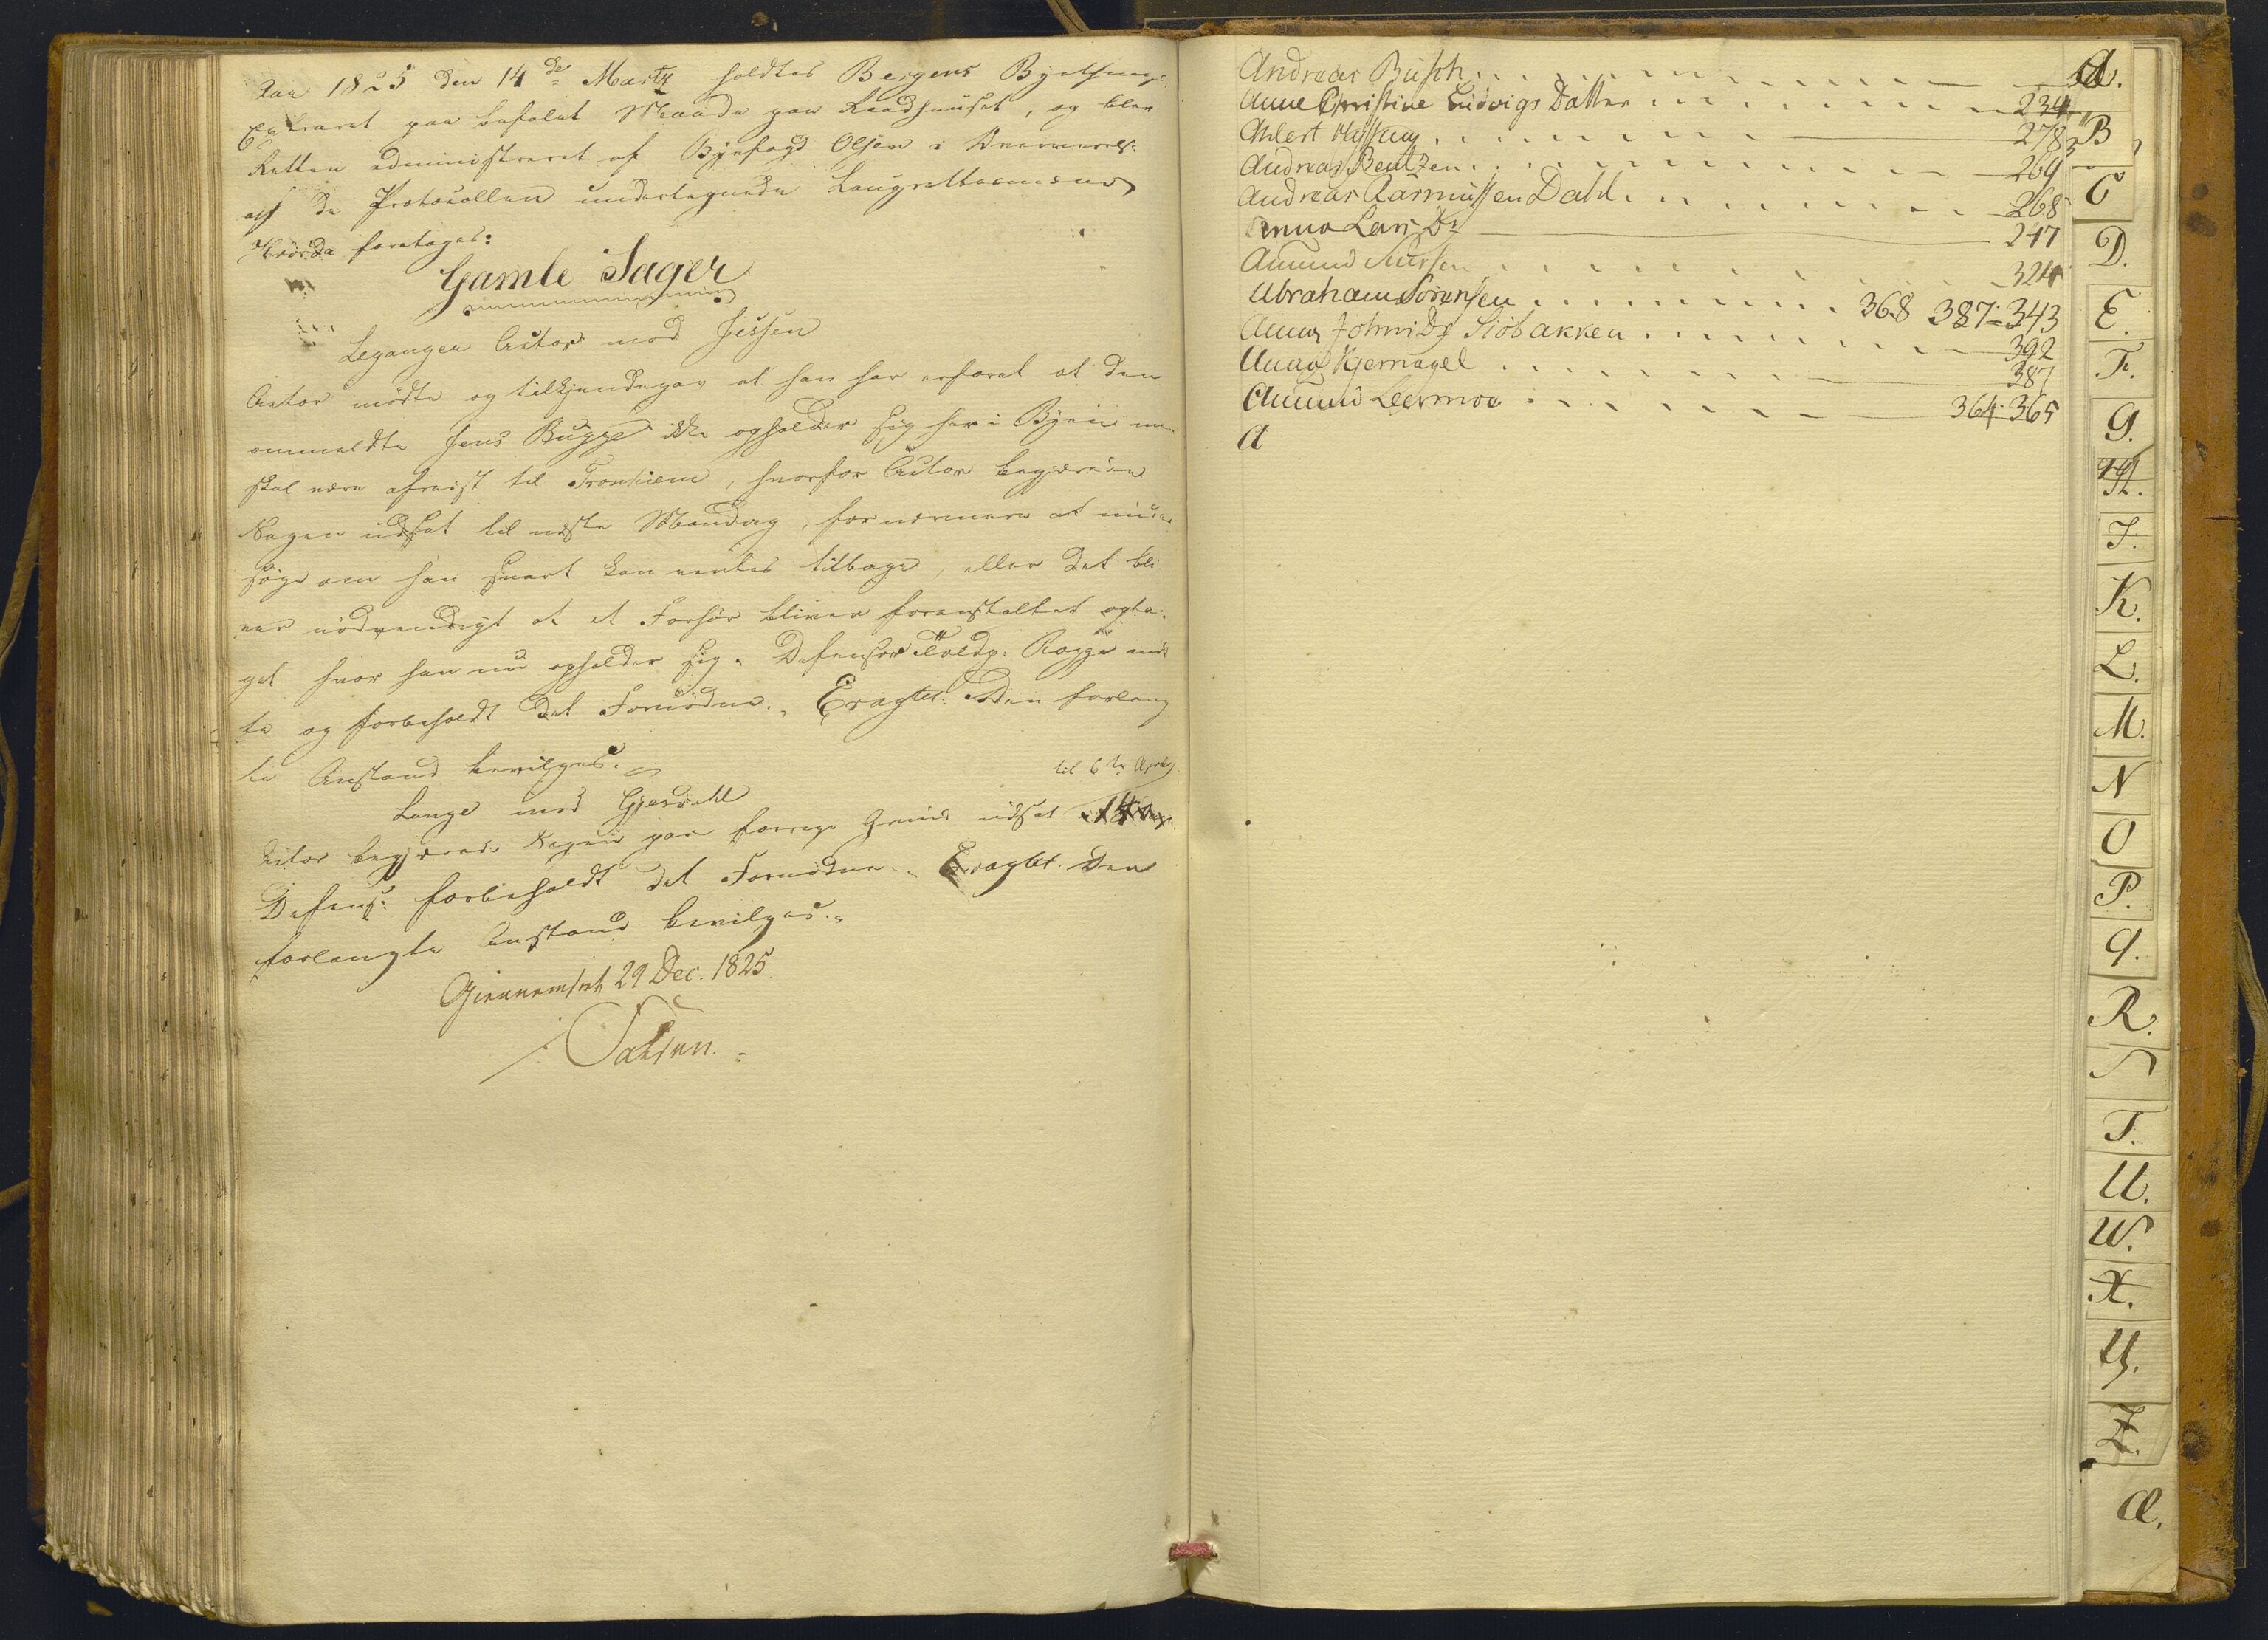 Aar 1825 den 14de Martz holdtes Bergens Byething
Extraret paa befalet Maade paa Raadhuuset, og blev
Retten administreret af Byefogd Olsen i Overværelse
af de Protocollen undertegnede Laugrettesmænd
Hvorda foretages:
Gamle Sager
Leganger Actor mod Jessen
Actor mødte og tilkjendegav at han har erfaret at den
ommeldte Jens Bugge ikke opholder sig her i Byen men
skal være afreist til Tronhiem, hvorfor Actor begjærede
Sagen udsat til næste Mandag, for nærmere at under
søge om han snart kan ventes tilbage, eller det bli
ver nødvendigt at et Forhør bliver foranstaltet opta-
get hvor han nu opholder sig. Defensor Toldp: Rogge mød
te og forbeholdt det Fornødne. Eragtet: Den forlang
te Anstand bevilges.
Lange mod Gjesdahl
til 6te April
Actor begjærede Sagen paa forrige Grund udsat 14 Dage
Defens: forbeholdt det Fornødne. Eragtet. Den
forlangte Anstand bevilges.
Giennemseet 29 Dec. 1825
Andreas Busch
Anne Christine Ludvigs Datter 234
Ahlert 278
Andreas Bentzen 269
Andreas Rasmussen Dahl 268
Anna Lars Dr 247
Amund 324
Abraham Sørensen 368 387 343
Anna Johns Dr Siøbakken 392
Anna Kjernagel 387
Amund Leermoe 364 365
A
A.
B
C
D.
E.
F.
G.
H.
I.
K.
L.
M.
N
O
P.
q.
R.
S
T.
U.
W.
X.
Y.
Z.
Æ.